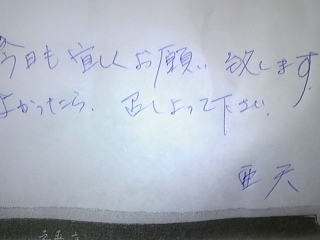 今日も宜しくお願い致します。
よかったら、召しよって下さい
亜天